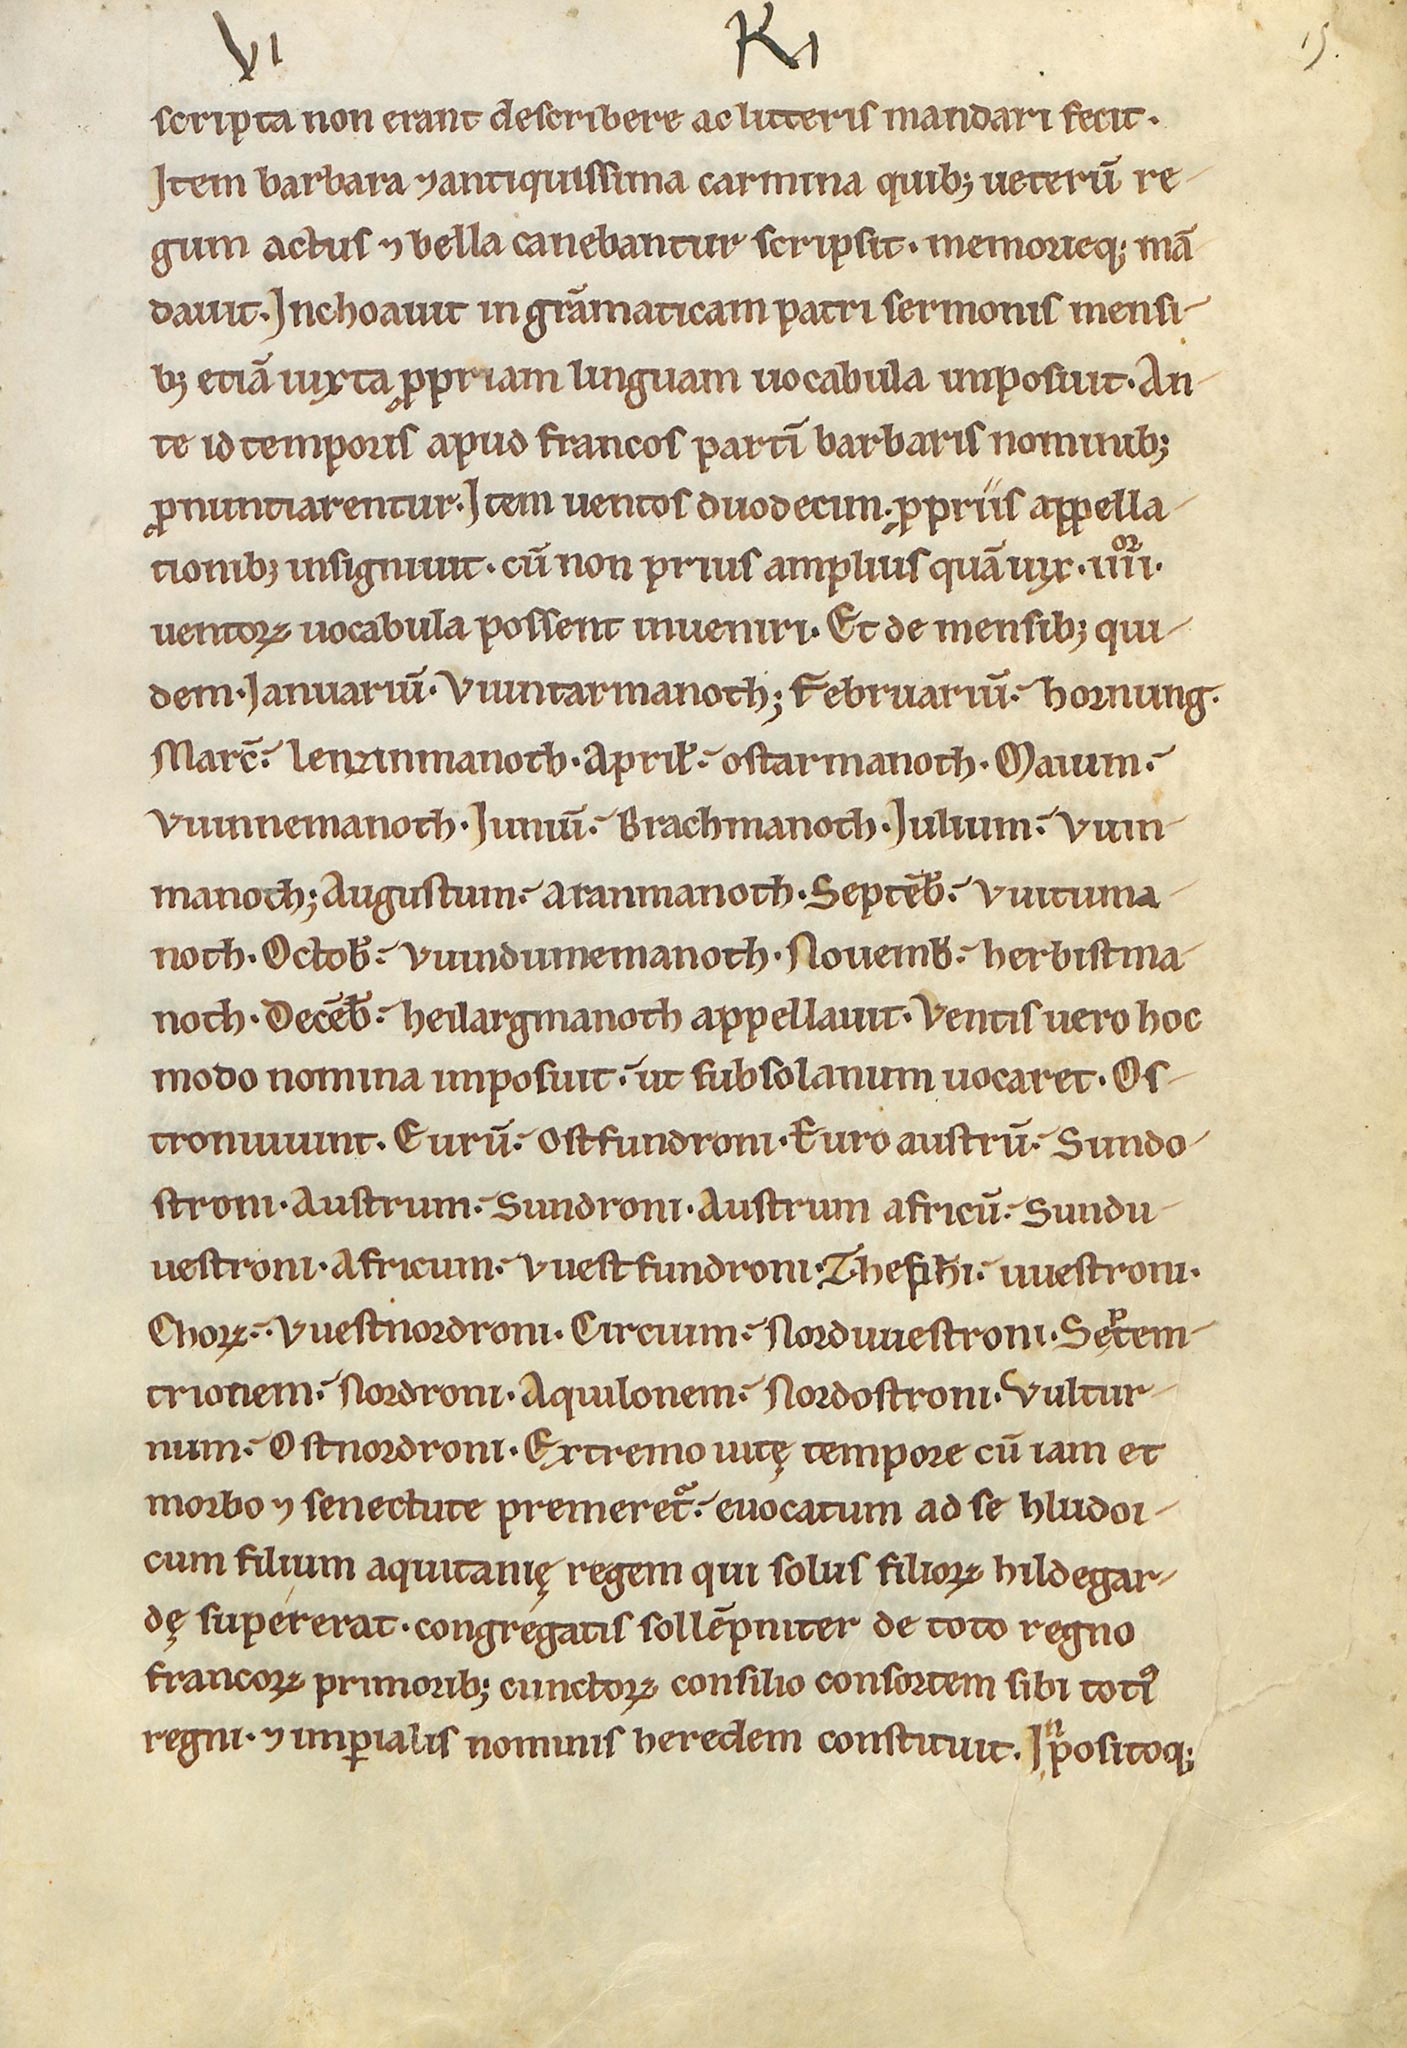 VI K I 15.
scripta non erant describere ac litteris mandari fecit.
Item barbara ⁊ antiquissima carmina quib; ueterū re-
gum actus ⁊ bella canebantur scripsit. memorieq; mā
dauit. Inchoauit in grāmaticam patri sermonis mensi-
b; etiā iuxta ꝓpriam linguam uocabula imposuit. An-
te id temporis apud francos partī barbaris nominib;
ꝓnuntiarentur. Item uentos duodecim. ꝓpriis appella-
tionib; insigniuit. cū non prius amplius quā uix. iiii.or
uentoꝝ uocabula possent inueniri. Et de mensib; qui-
dem. Ianuariū. Vuintarmanoth; Februariū. hornung.
Marc̄. lenzinmanoth. April̄. ostarmanoth. Maium.
Vuinnemanoth. Iuniū. Brachmanoth. Iulium. Vuin-
manoth; Augustum. aranmanoth. Septēb̄. Vuituma-
noth. Octob̄. Vuindumemanoth. Nouemb̄. herbistma-
noth. Decēb̄. heilargmanoth appellauit. Ventis uero hoc
modo nomina imposuit. ut subsolanum uocaret. Os-
troniuuint. Eurū. ostsundroni. Euro austrū. Sundo-
stroni. Austrum. Sundroni. Austrum africū. Sundu-
uestroni. Africum. Vuestsundroni. Zhefih̄i. uuestroni.
Choꝝ. Vuestnordroni. Circium. Norduuestroni. Sęptem-
trionem. Nordroni. Aquilonem. Nordostroni. Vultur-
num. Ostnordroni. Extremo uitę tempore cū iam et
morbo ⁊ senectute premeret᷑. euocatum ad se hludoi-
cum filium aquitanię regem qui solus filioꝝ hildegar-
dę supererat. congregatis sollēpniter de toto regno
francoꝝ primorib; cunctoꝝ consilio consortem sibi totiꝰ
regni. ⁊ imꝑialis nominis heredem constituit. Inpositoq;